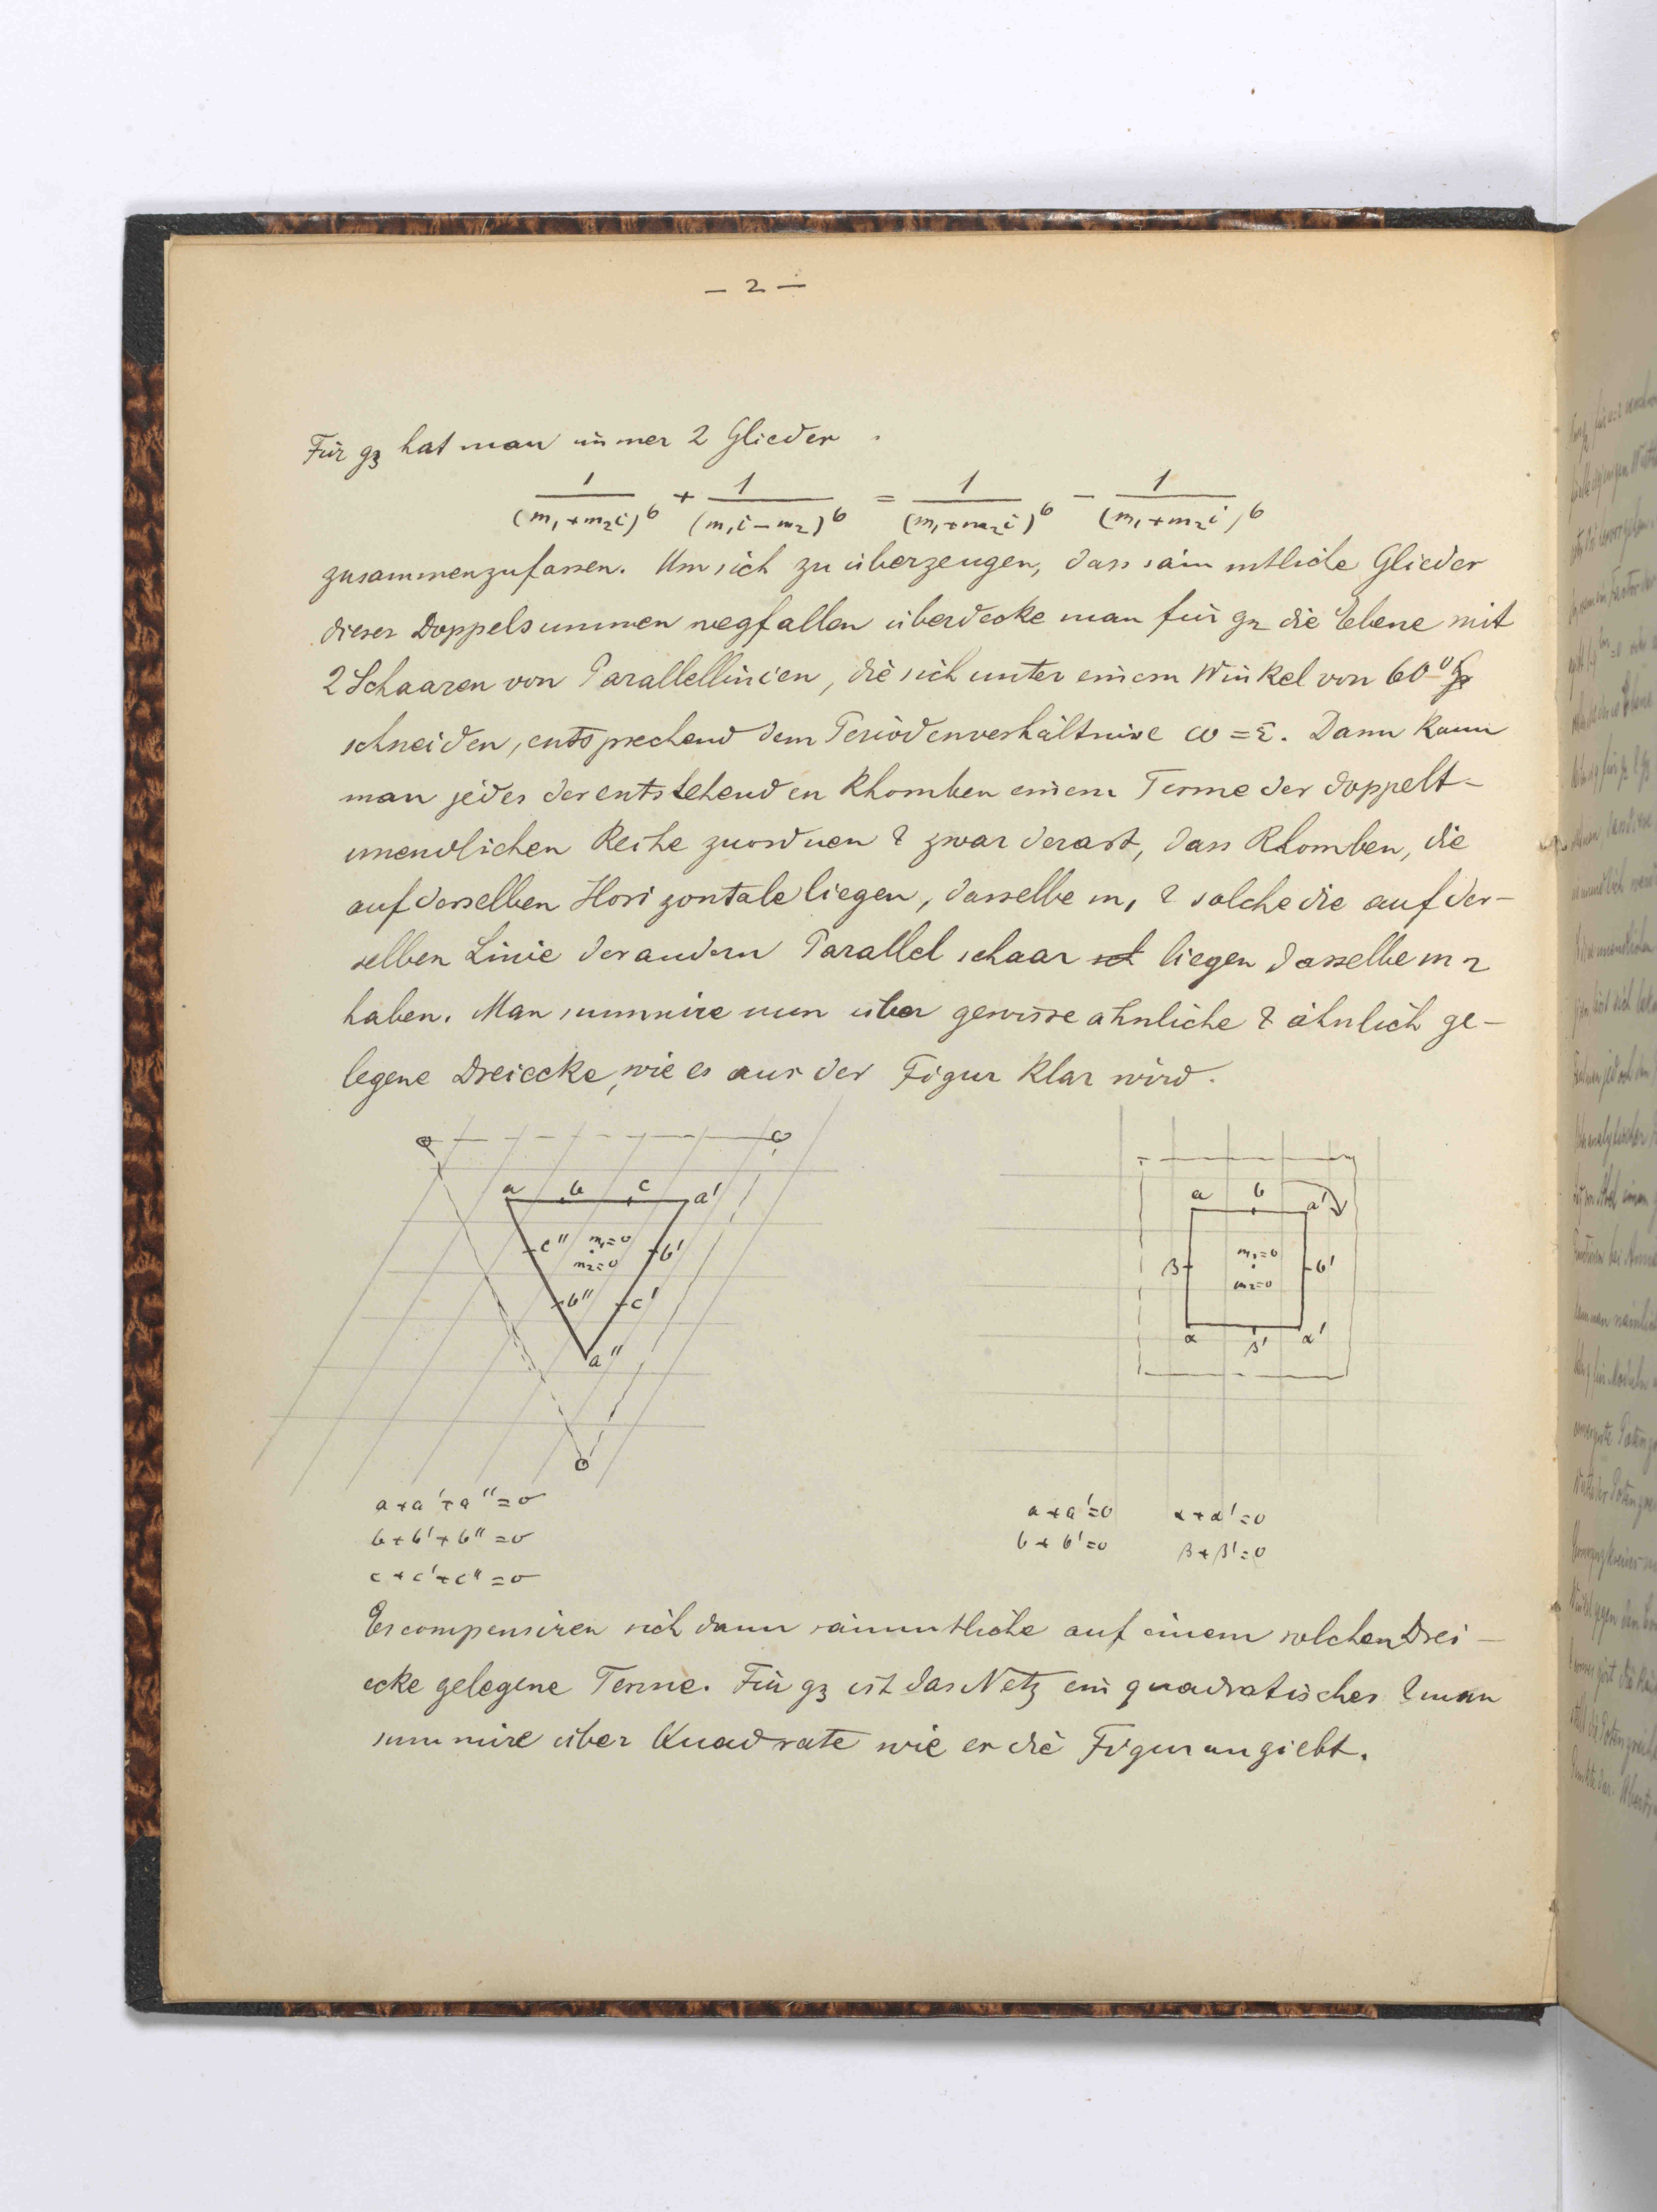 — 2 —
Für g3 hat man immer 2 Glieder
1/(m1+m2i)^6 + 1/(m1i−m2)^6 = 1/(m1+m2i)^6 − 1/(m1+m2i)^6
zusammenzufassen. Um sich zu überzeugen, dass sämmtliche Glieder
dieser Doppelsummen wegfallen überdecke man für g2 die Ebene mit
2 Schaaren von Parallellinien, die sich unter einem Winkel von 60°
schneiden, entsprechend dem Periodenverhältnise ω = ε. Dann kann
man jedes der entstehenden Rhomben einem Terme der doppelt-
unendlichen Reihe zuordnen & zwar derart, dass Rhomben, die
auf derselben Horizontale liegen, dasselbe m1 & solche die auf der-
selben Linie der andern Parallelschaar liegen dasselbe m2
haben. Man summire nun über gewisse ähnliche & ähnlich ge-
legene Dreiecke, wie es aus der Figur klar wird.
a b c a'
c'' m1=0 b'
m2=0
b'' c'
a''
a b a'
β m1=0 b'
m2=0
α β' α'
a+a'+a''=0
b+b'+b''=0
c+c'+c''=0
a+a'=0 α+α'=0
b+b'=0 β+β'=0
Es compensiren sich dann sämmtliche auf einem solchen Drei-
ecke gelegene Terme. Für g3 ist das Netz ein quadratisches & man
summire über Quadrate wie es die Figur angiebt.